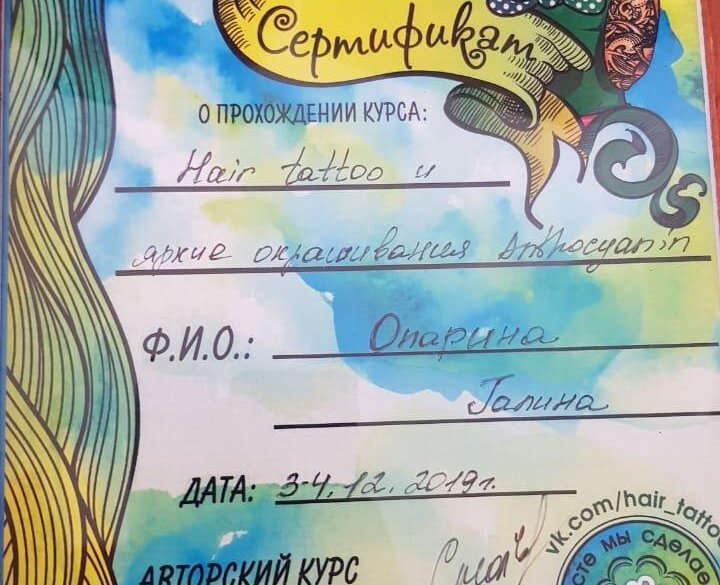 Сертификат
О ПРОХОЖДЕНИИ КУРСА:
Hair tattoo и
яркие окрашивания Anthocyanin
Ф.И.О.: Опарина
Галина
ДАТА: 3-4.12.2019г.
vk.com/hair_tattoo
АВТОРСКИЙ КУРС
мы сделае